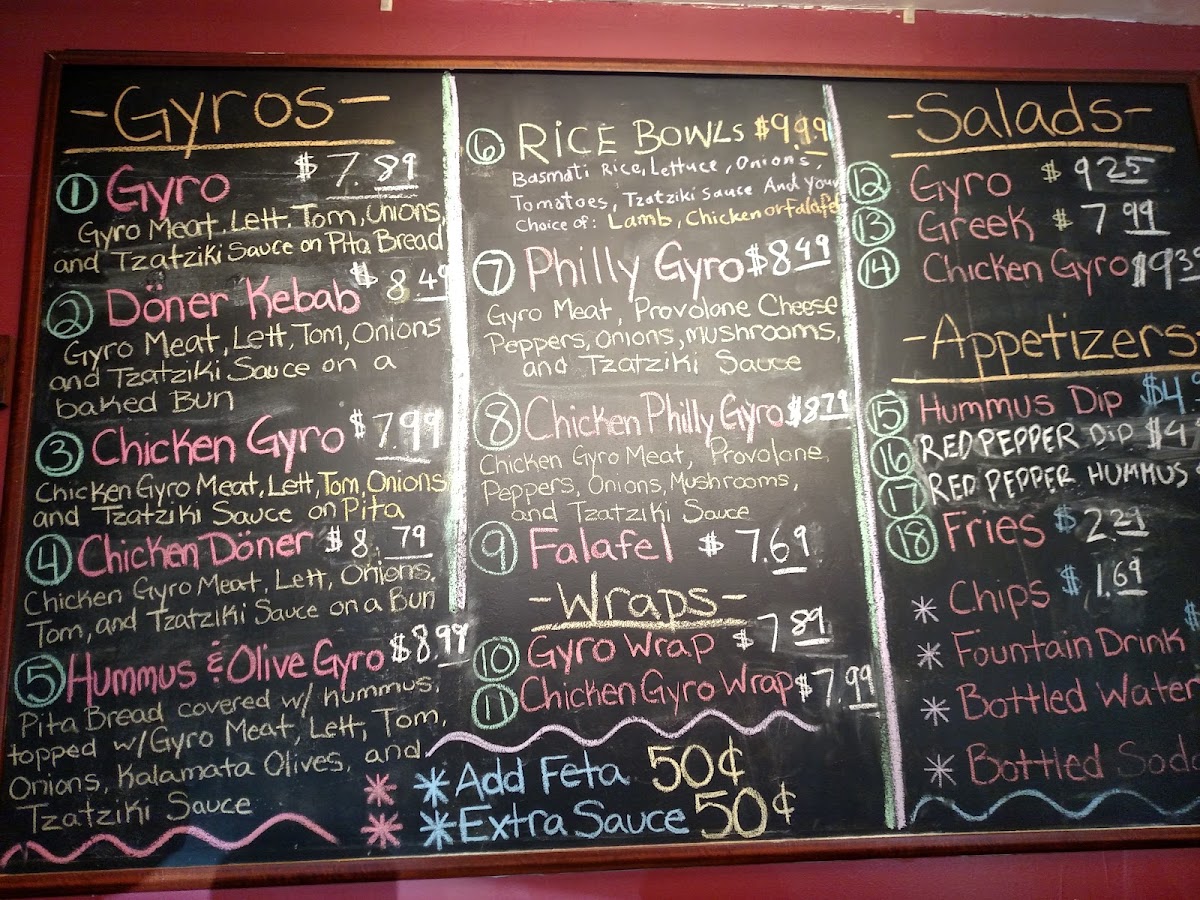 -Gyros-
1 Gyro $7.89
Gyro Meat, Lett, Tom, Onions,
and Tzatziki Sauce on Pita Bread
2 Döner Kebab $8.49
Gyro Meat, Lett, Tom, Onions
and Tzatziki Sauce on a
baked Bun
3 Chicken Gyro $7.99
Chicken Gyro Meat, Lett, Tom, Onions
and Tzatziki Sauce on Pita
4 Chicken Döner $8.79
Chicken Gyro Meat, Lett, Onions,
Tom, and Tzatziki Sauce on a Bun
5 Hummus & Olive Gyro $8.99
Pita Bread covered w/ hummus,
topped w/Gyro Meat, Lett, Tom,
Onions, Kalamata Olives, and
Tzatziki Sauce
6 RICE BOWLS $9.99
Basmati Rice, Lettuce, Onions,
Tomatoes, Tzatziki Sauce And Your
Choice of: Lamb, Chicken or Falafel
7 Philly Gyro $8.49
Gyro Meat, Provolone Cheese
Peppers, Onions, mushrooms,
and Tzatziki Sauce
8 Chicken Philly Gyro $8.79
Chicken Gyro Meat, Provolone,
Peppers, Onions, Mushrooms,
and Tzatziki Sauce
9 Falafel $7.69
-Wraps-
10 Gyro Wrap $7.89
11 Chicken Gyro Wrap $7.99
* Add Feta 50¢
* Extra Sauce 50¢
-Salads-
12 Gyro $9.25
13 Greek $7.99
14 Chicken Gyro $9.39
-Appetizers-
15 Hummus Dip $4.
16 RED PEPPER DiP $4.
17 RED PEPPER HUMMUS
18 Fries $2.29
* Chips $1.69
* Fountain Drink $
* Bottled Water
* Bottled Soda